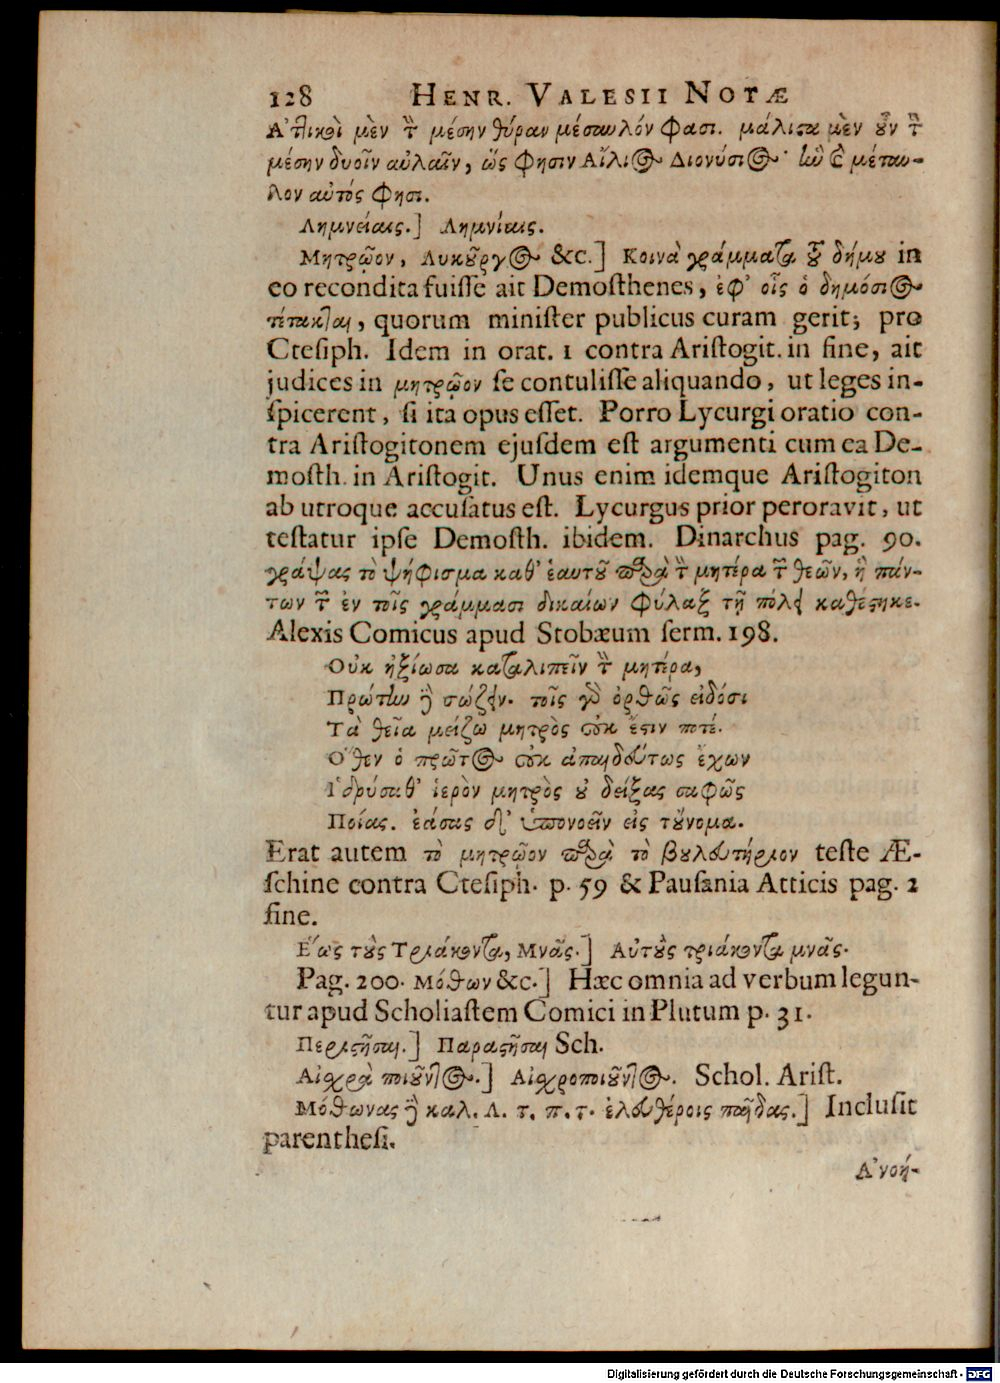 128 HENR. VALESII NOTÆ
Ἀττικοὶ μὲν τὴν μέσην θύραν μέσαυλόν φασι. μάλιστα μὲν οὖν τὴν
μέσην δυοῖν αὐλαῖν, ὥς φησιν Αἴλιος Διονύσιος· ἣν καὶ μέταυ-
λον αὐτός φησι.
Λημνείαις.] Λημνίαις.
Μητρῷον, Λυκοῦργος &c.] Κοινὰ γράμματα τοῦ δήμου in
eo recondita fuiſſe ait Demoſthenes, ἐφ' οἷς ὁ δημόσιος
τέτακται, quorum miniſter publicus curam gerit; pro
Cteſiph. Idem in orat. 1 contra Ariſtogit. in fine, ait
judices in μητρῷον ſe contuliſſe aliquando, ut leges in-
ſpicerent, ſi ita opus eſſet. Porro Lycurgi oratio con-
tra Ariſtogitonem ejuſdem eſt argumenti cum ea De-
moſth. in Ariſtogit. Unus enim idemque Ariſtogiton
ab utroque accuſatus eſt. Lycurgus prior peroravit, ut
teſtatur ipſe Demoſth. ibidem. Dinarchus pag. 90.
γράψας τὸ ψήφισμα καθ' ἑαυτοῦ παρὰ τὴν μητέρα τῶν θεῶν, ἣ πάν-
των τῶν ἐν τοῖς γράμμασι δικαίων φύλαξ τῇ πόλει καθέστηκε.
Alexis Comicus apud Stobæum ſerm. 198.
Οὐκ ἠξίωσα καταλιπεῖν τὴν μητέρα,
Πρώτην δὲ σώζειν. τοῖς γὰρ ὀρθῶς εἰδόσι
Τὰ θεῖα μείζω μητρὸς οὐκ ἔστιν ποτέ.
Ὅθεν ὁ πρῶτος οὐκ ἀπαιδεύτως ἔχων
Ἱδρύσαθ' ἱερὸν μητρὸς οὐ δείξας σαφῶς
Ποίας. ἐάσας δ' ὑπονοεῖν εἰς τοὔνομα.
Erat autem τὸ μητρῷον παρὰ τὸ βουλευτήριον teſte Æ-
ſchine contra Cteſiph. p. 59 & Pauſania Atticis pag. 2
fine.
Ἕως τοὺς Τριάκοντα, Μνᾶς.] Αὐτοὺς τριάκοντα μνᾶς.
Pag. 200. Μόθων &c.] Hæc omnia ad verbum legun-
tur apud Scholiaſtem Comici in Plutum p. 31.
Περιστῆσαι.] Παραστῆσαι Sch.
Αἰσχρὰ ποιοῦντος.] Αἰσχροποιοῦντος. Schol. Ariſt.
Μόθωνας δὲ καλ. Λ. τ. π. τ. ἐλευθέροις παῖδας.] Incluſit
parentheſi.
Ἀνοή-
Digitalisierung gefördert durch die Deutsche Forschungsgemeinschaft - DFG